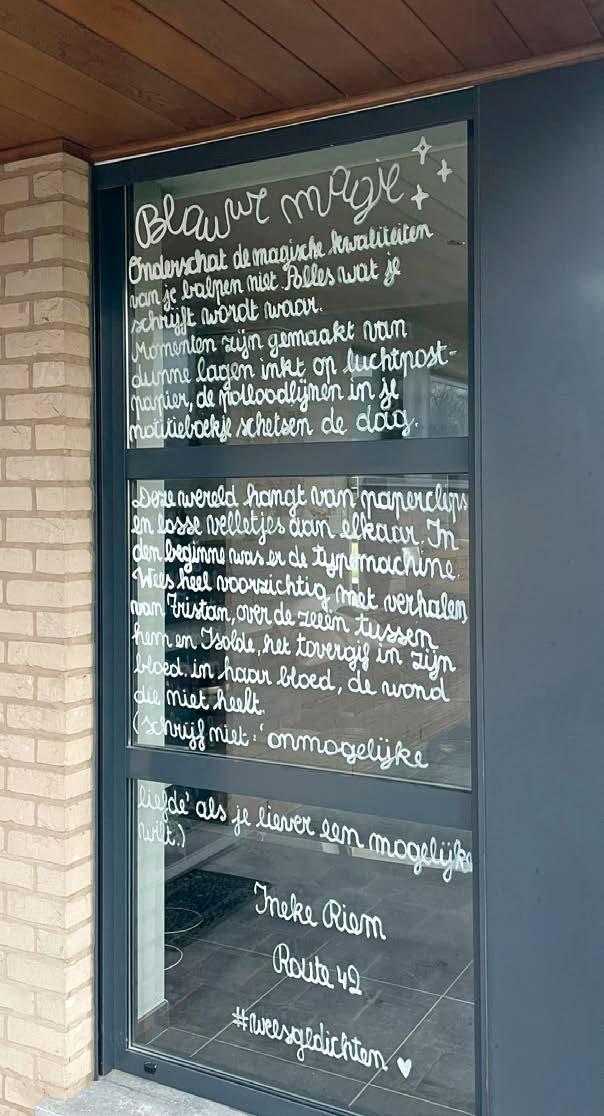 Blauwe magie
Onderschat de magische kwaliteiten
van je balpen niet. Alles wat je
schrijft wordt waar.
Momenten zijn gemaakt van
dunne lagen inkt op luchtpost-
papier, de potloodlijnen in je
notitieboekje schetsen de dag.
Deze wereld hangt van paperclips
en losse velletjes aan elkaar. In
den beginne was er de typemachine.
Wees heel voorzichtig met verhalen
van Tristan, over de zeeën tussen
hem en Isolde, het tovergif in zijn
bloed, in haar bloed, de wond
die niet heelt.
(schrijf niet: 'onmogelijke
liefde' als je liever een mogelijke
wilt.)
Ineke Riem
Route 42
#weesgedichten ♥